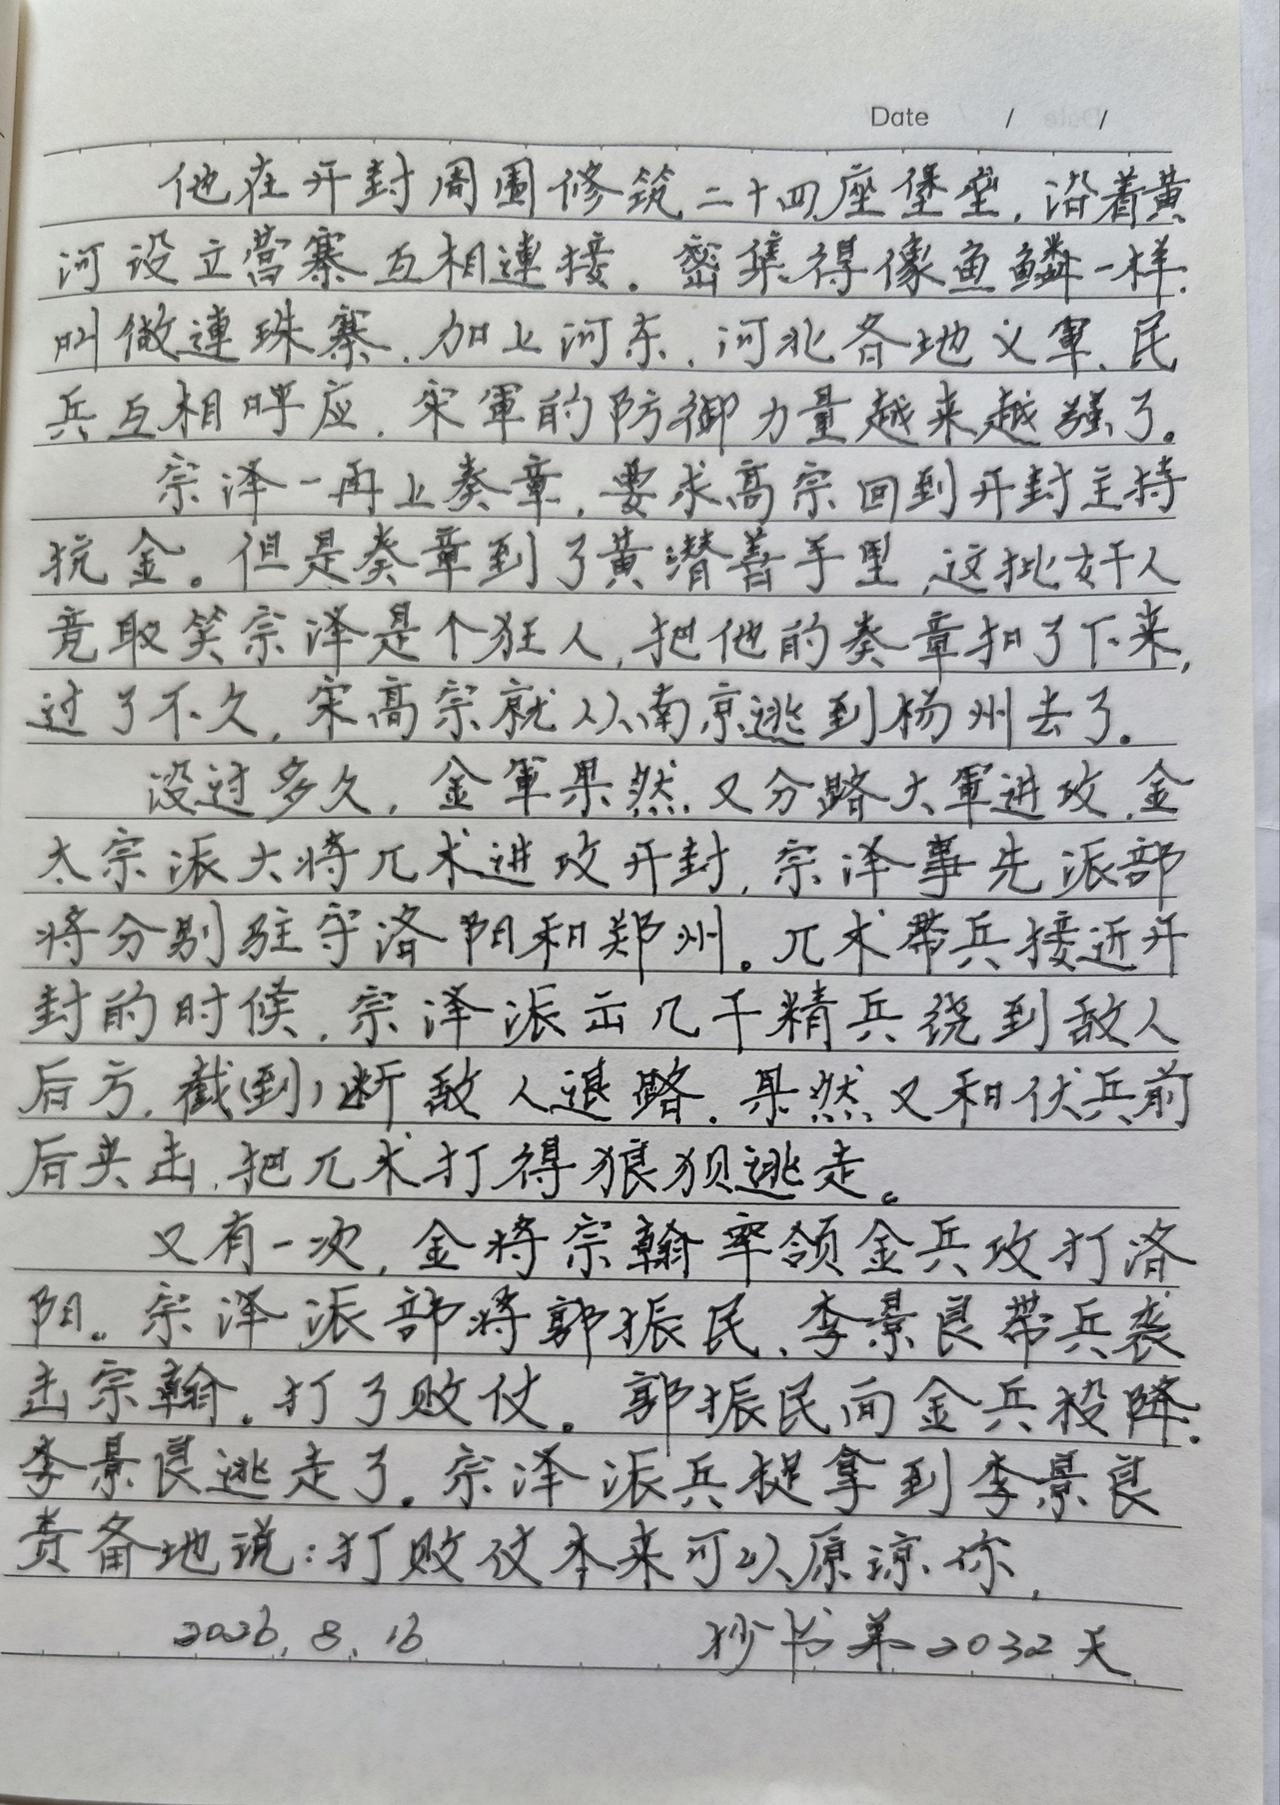 Date / /
他在开封周围修筑二十四座堡垒，沿着黄
河设立营寨互相連接。密集得像鱼鳞一样，
叫做連珠寨，加上河东，河北各地义軍、民
兵互相呼应，宋軍的防御力量越来越强了。
宗泽一再上奏章，要求高宗回到开封主持
抗金。但是奏章到了黄潜善手里，这批奸人
竟取笑宗泽是个狂人，把他的奏章扣了下来，
过了不久，宋高宗就从南京逃到杨州去了。
没过多久，金軍果然又分路大軍进攻，金
太宗派大将兀术进攻开封，宗泽事先派部
将分别驻守洛阳和郑州。兀术带兵接近开
封的时候，宗泽派出几千精兵绕到敌人
后方，截(到)断敌人退路，果然又和伏兵前
后夹击，把兀术打得狼狈逃走。
又有一次，金将宗翰率领金兵攻打洛
阳。宗泽派部将郭振民、李景良带兵袭
击宗翰。打了败仗。郭振民向金兵投降。
李景良逃走了。宗泽派兵捉拿到李景良
责备地说：打败仗本来可以原谅你，
2026.8.16 抄书第2032天